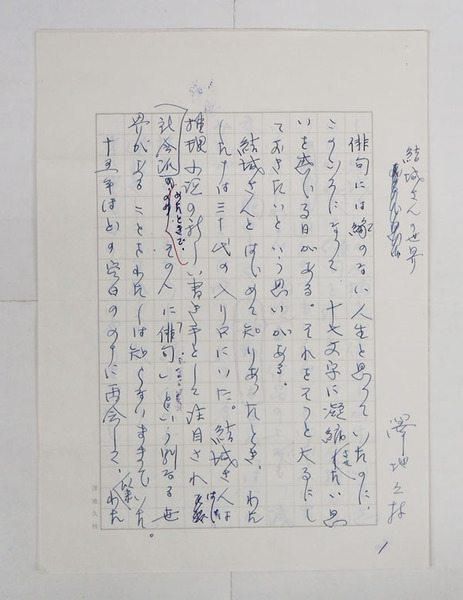 結城さんの世界
澤地久枝
1
俳句には縁のない人生と思っていたのに、
このごろになって、十七文字に凝縮させたい思
いを感じる日がある。それをそっと大事にし
ておきたいという思いがある。
結城さんとはじめて知りあったとき、わた
したちは三十代の入り口にいた。結城さんは
推理小説の新しい書き手として注目され
社会派の そのひとに俳句という別なる世
界があることをわたしは知らないままでいた。
十五年ほどの空白ののちに再会して、わた
澤地久枝